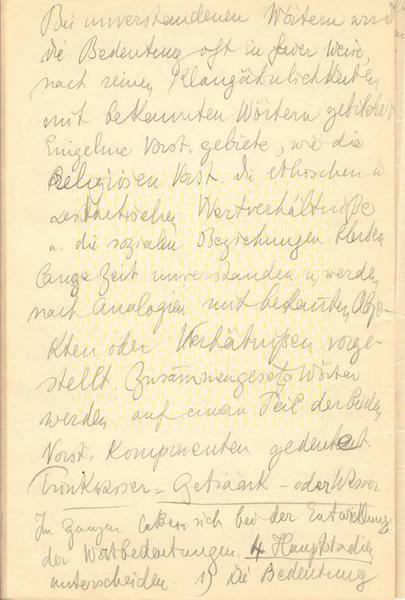 Bei unverstandenen Wörtern wird
die Bedeutung oft in freier Weise,
nach reinen Klangähnlichkeiten
mit bekannten Wörtern gebildet.
Einzelne Vorst. gebiete, wie die
religiösen Vorst. die ethischen u.
aesthetischen Wertverhältniße
u. die sozialen Beziehungen bleiben
lange Zeit unverstanden u. werden
nach Analogien mit bekannten Obje-
kten oder Verhältnißen vorge-
stellt. Zusammengesetz Wörter
werden auf einen Teil der beiden
Vorst. Komponenten gedeutet.
Trinkwasser = Getränk - oder Wasser
Im ganzen laßen sich bei der Entwicklung
der Wortbedeutungen 4 Hauptstadien
unterscheiden. 1) Die Bedeutung